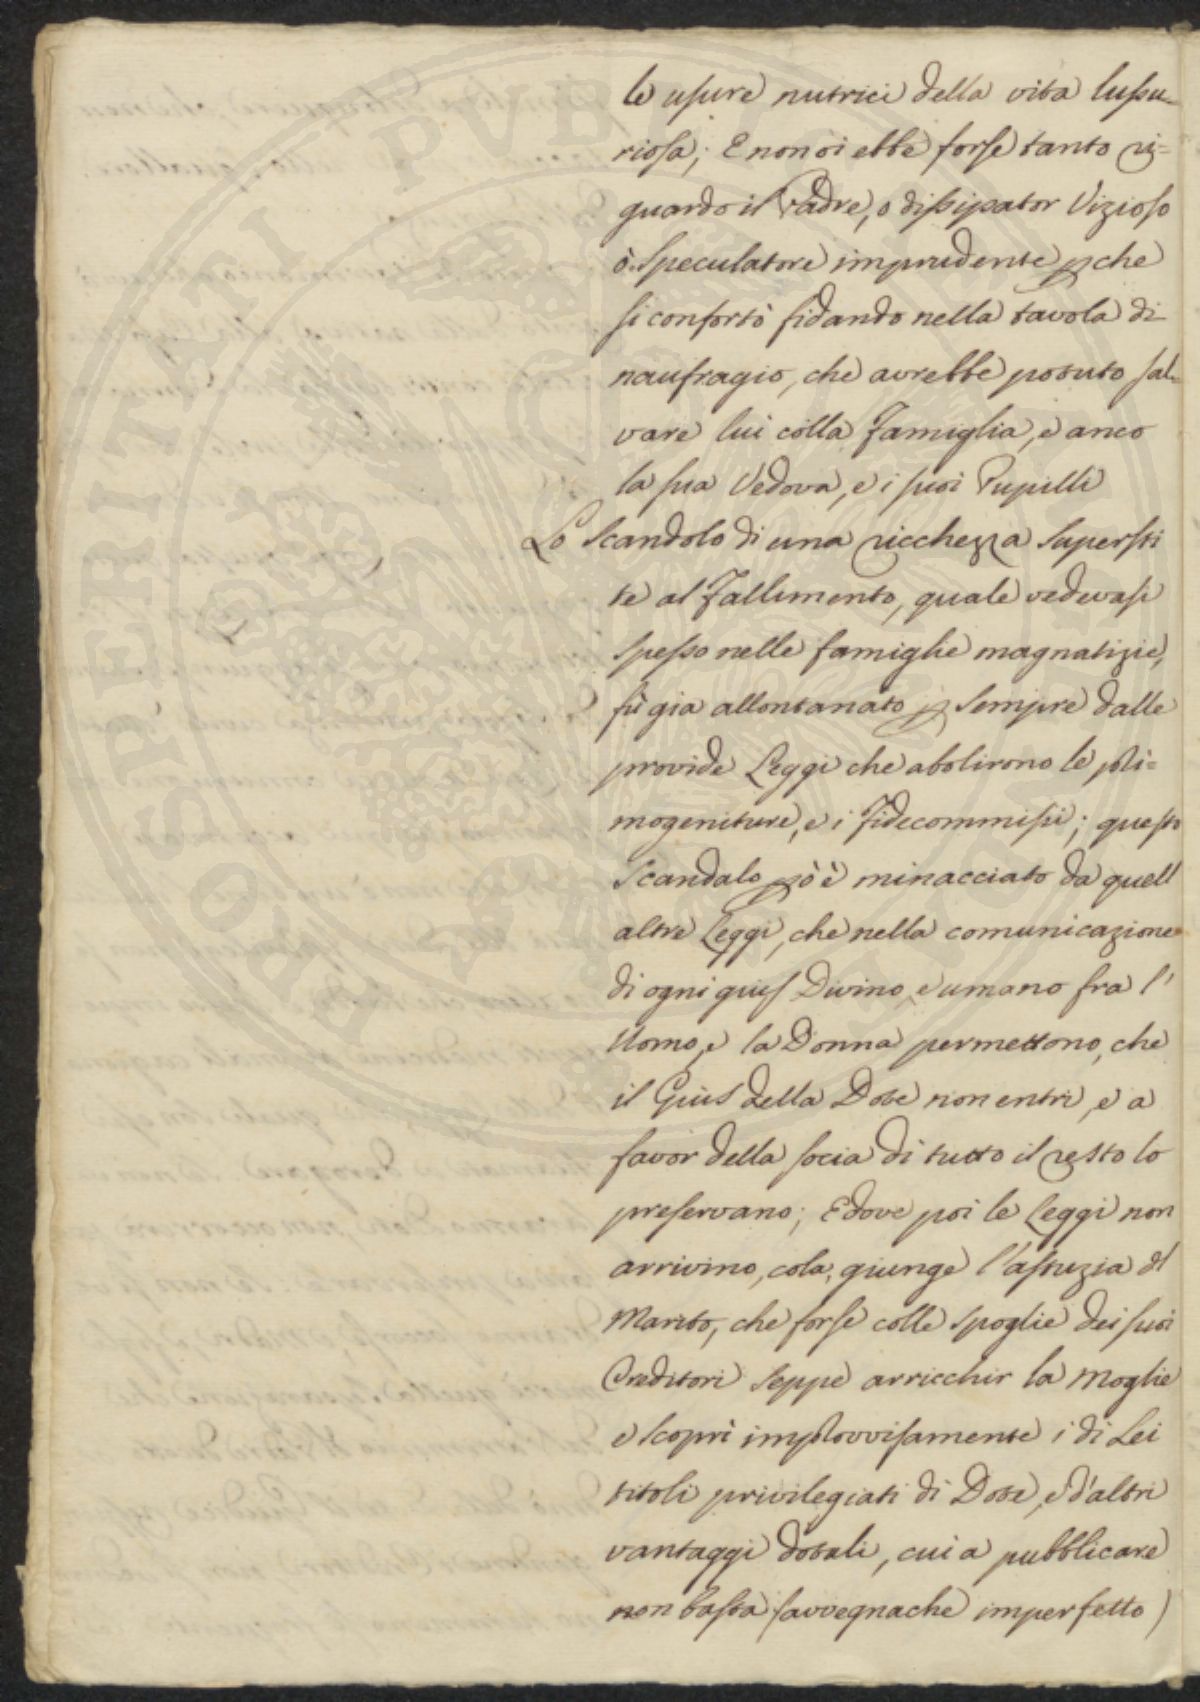 le usure nutrici della vita lussu-
riosa; E non vi ebbe forse tanto ri=
guardo il Padre, o dissipator Vizioso
ò Speculatore imprudente pche
si confortò fidando nella tavola di
naufragio, che avrebbe potuto sal-
vare lui colla Famiglia, e anco
la sua Vedova, e i suoi Pupilli
Lo Scandolo di una ricchezza Supersti
te al Fallimento, quale vedevasi
spesso nelle famiglie magnatizie,
fù gia allontanato p sempre dalle
provide Leggi che abolirono le pri=
mogeniture, e i Fidecommissi; questo
Scandalo pò è minacciato da quell
altre Leggi, che nella comunicazione
di ogni gius Divino, e umano fra l'
Uomo, e la Donna permettono, che
il Gius della Dote non entri, e a
favor della socia di tutto il resto lo
preservano; E dove poi le Leggi non
arrivino, cola, giunge l'astuzia dl
Marito, che forse colle spoglie dei suoi
Creditori Seppe arricchir la Moglie
e scoprì improvvisamente i di Lei
titoli privilegiati di Dote, e d'altri
vantaggi dotali, cui a pubblicare
non basta (avvegnache imperfetto)
PROSPERITATI PVBLICAE